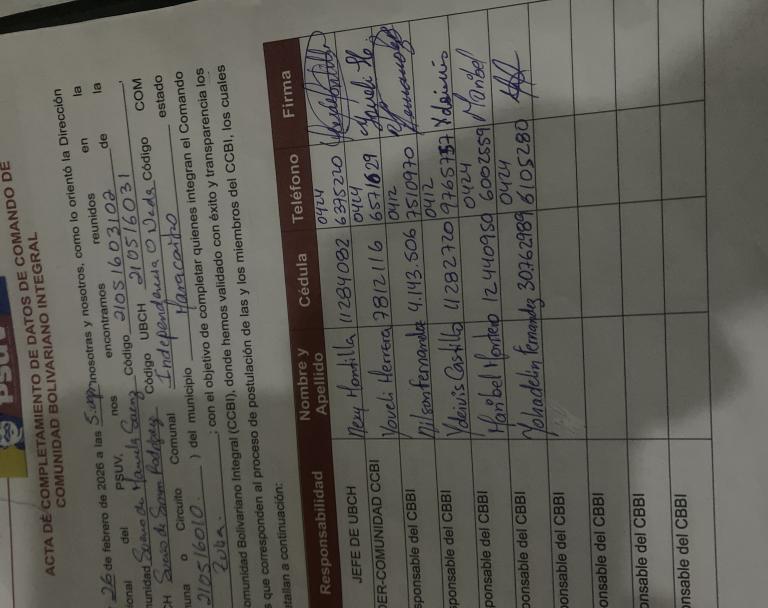 psuv
ACTA DE COMPLETAMIENTO DE DATOS DE COMANDO DE
COMUNIDAD BOLIVARIANO INTEGRAL
26 de febrero de 2026 a las 5:pm nosotras y nosotros, como lo orientó la Dirección
ional del PSUV, nos encontramos reunidos en la
munidad Sueño de Manuela Saenz Código 210516031 de la
CH Sueño de Simon Rodriguez Código UBCH 210516031 Código COM
una o Circuito Comunal Independencia O Nada
210516010. ) del municipio Maracaibo estado
Zulia. ; con el objetivo de completar quienes integran el Comando
omunidad Bolivariano Integral (CCBI), donde hemos validado con éxito y transparencia los
s que corresponden al proceso de postulación de las y los miembros del CCBI, los cuales
etallan a continuación:
Responsabilidad Nombre y Apellido Cédula Teléfono Firma
JEFE DE UBCH Nexy Montilla 11284082 0424 6395220
DER-COMUNIDAD CCBI Yoveli Herrera 7812116 0424 6571629
sponsable del CBBI Nilson Fernandez 4.143.506 0412 7510970 Fernandez
sponsable del CBBI Ydeivis Castillo 11282720 0412 9765737 Ydeivis
sponsable del CBBI Maribel Montero 12440950 0424 6002559 Maribel
sponsable del CBBI Yohadelin Fernandez 30.762989 0424 6105280
sponsable del CBBI
sponsable del CBBI
onsable del CBBI
nsable del CBBI